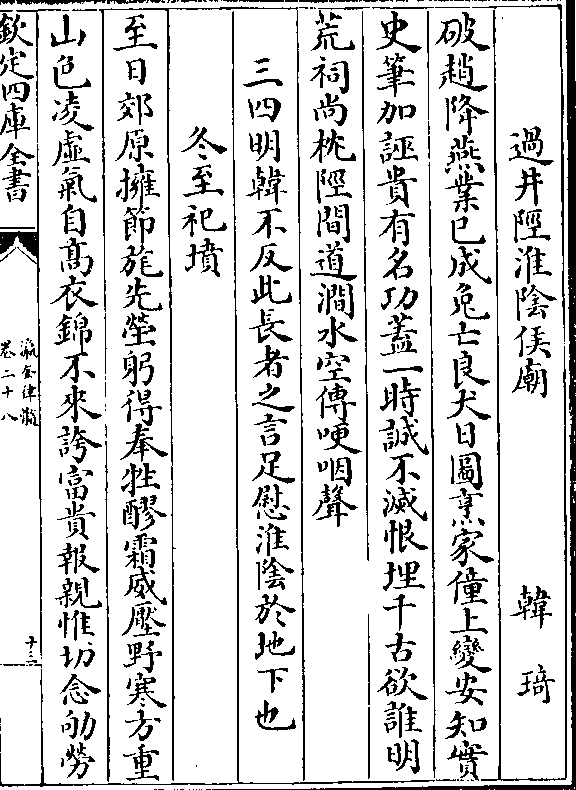 過井陘淮隂侯廟　韓琦
破趙降燕業已成兔亡良犬日圖烹家僮上變安知實
史筆加誣貴有名功蓋一時誠不滅恨埋千古欲誰明
荒祠尚枕陘間道澗水空傳哽咽聲
三四明韓不反此長者之言足慰淮隂於地下也
冬至祀墳
至日郊原擁節旄先塋躬得奉牲醪霜威壓野寒方重
山色凌虛氣自髙衣錦不來誇富貴報親惟切念劬勞
欽定四庫全書
瀛奎律髓
卷二十八
十三